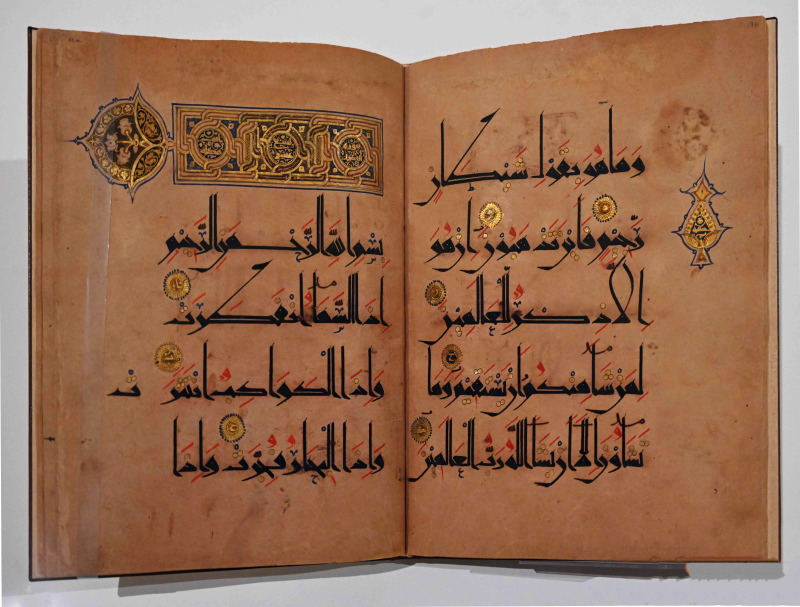 وَمَا هُوَ بِقَوْلِ شَيْطَانٍ رَ
جِيمٍ فَأَيْنَ تَذْهَبُونَ إِنْ هُوَ
إِلَّا ذِكْرٌ لِلْعَالَمِينَ
لِمَنْ شَاءَ مِنْكُمْ أَنْ يَسْتَقِيمَ وَمَا
تَشَاؤُنَ إِلَّا أَنْ يَشَاءَ اللَّهُ رَبُّ الْعَالَمِينَ
بِسْمِ اللَّهِ الرَّحْمَنِ الرَّحِيمِ
إِذَا السَّمَاءُ انْفَطَرَتْ
وَإِذَا الْكَوَاكِبُ انْتَثَرَ تْ
وَإِذَا الْبِحَارُ فُجِّرَتْ وَإِذَا